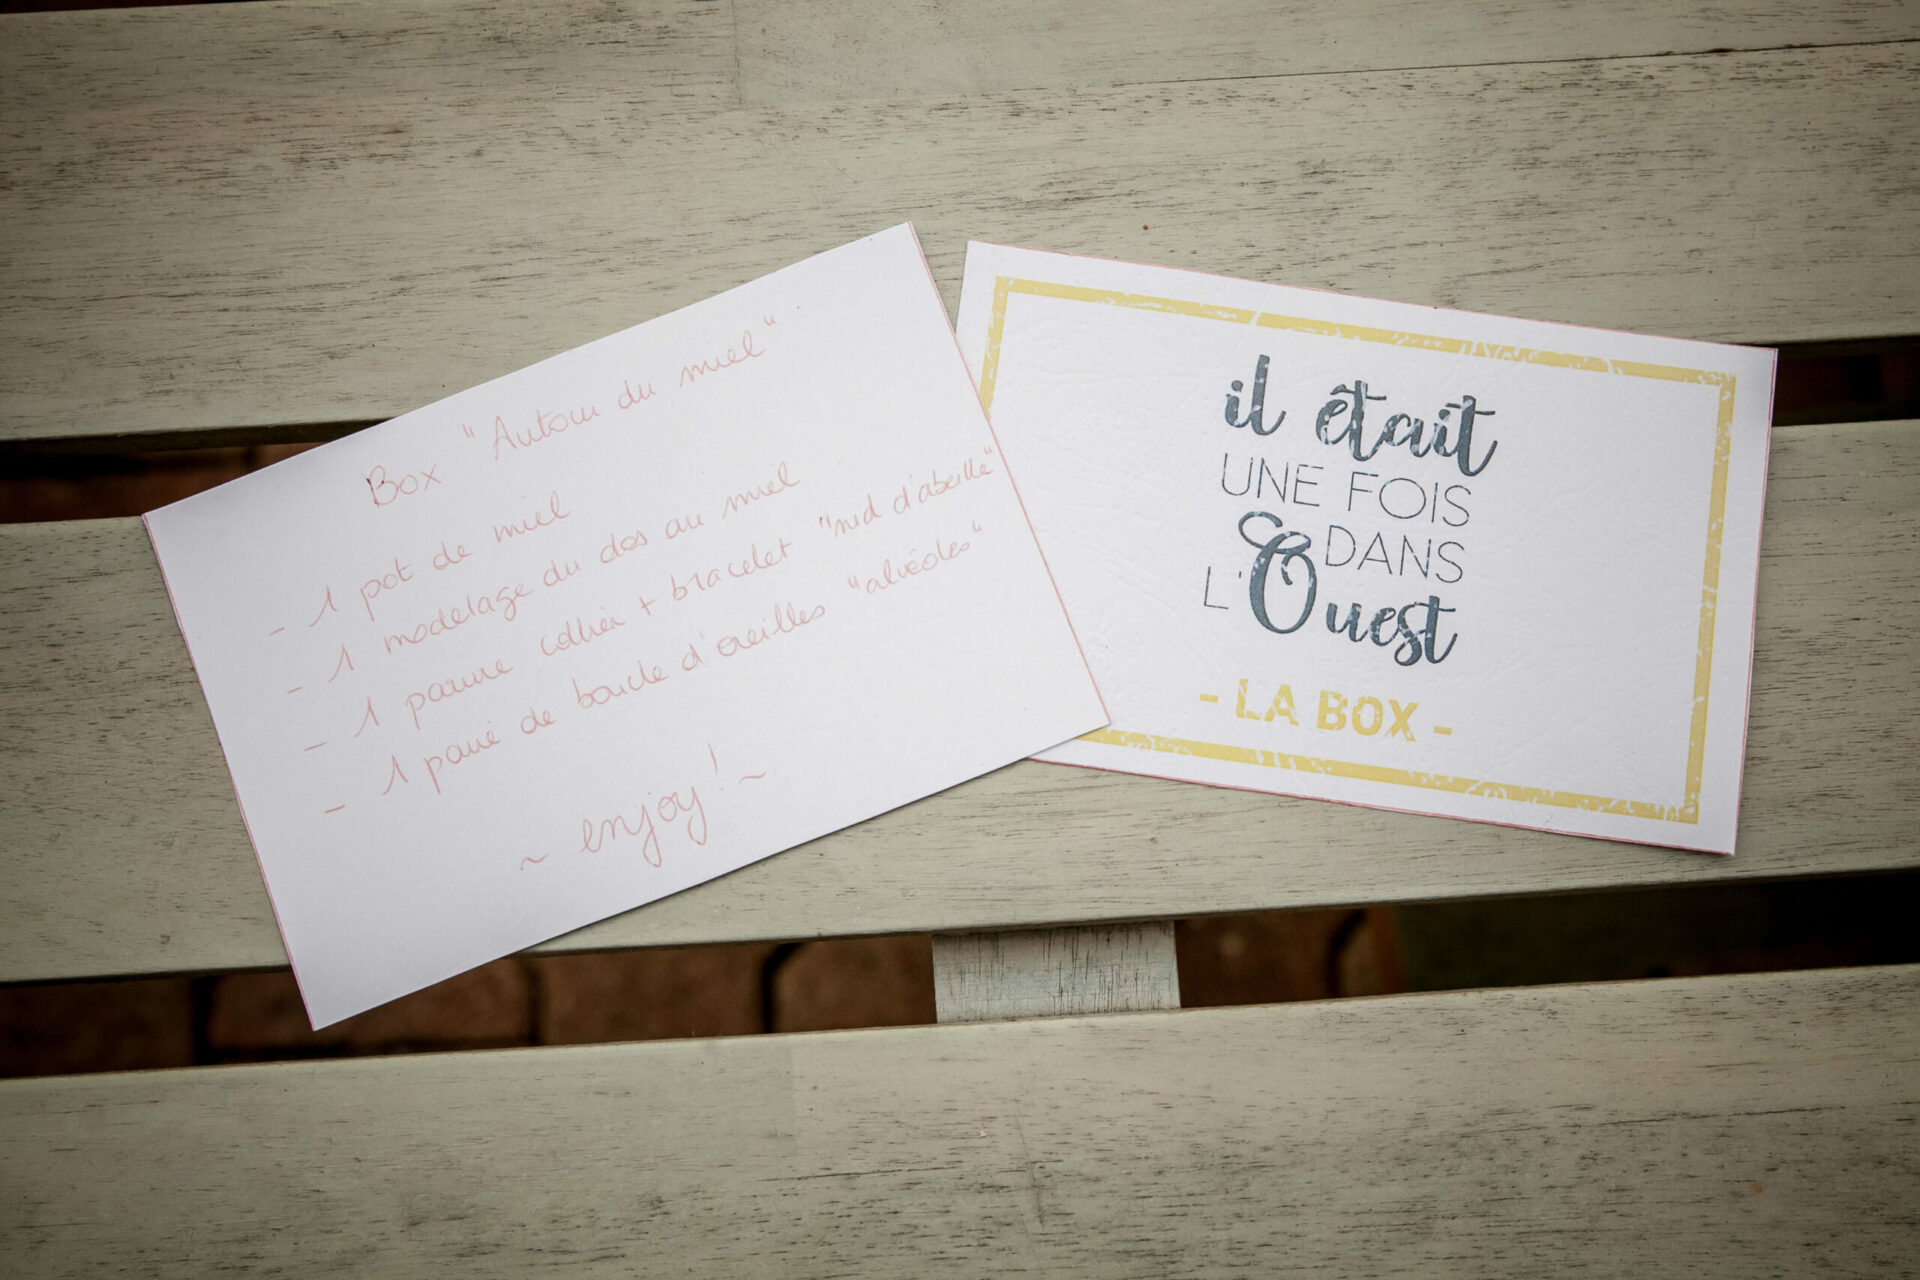 Box "Autour du miel"
- 1 pot de miel
- 1 modelage du dos au miel
- 1 parure collier + bracelet "nid d'abeille"
- 1 paire de boucle d'oreilles "alvéoles"
~ enjoy! ~
il était
UNE FOIS
DANS
L'Ouest
- LA BOX -